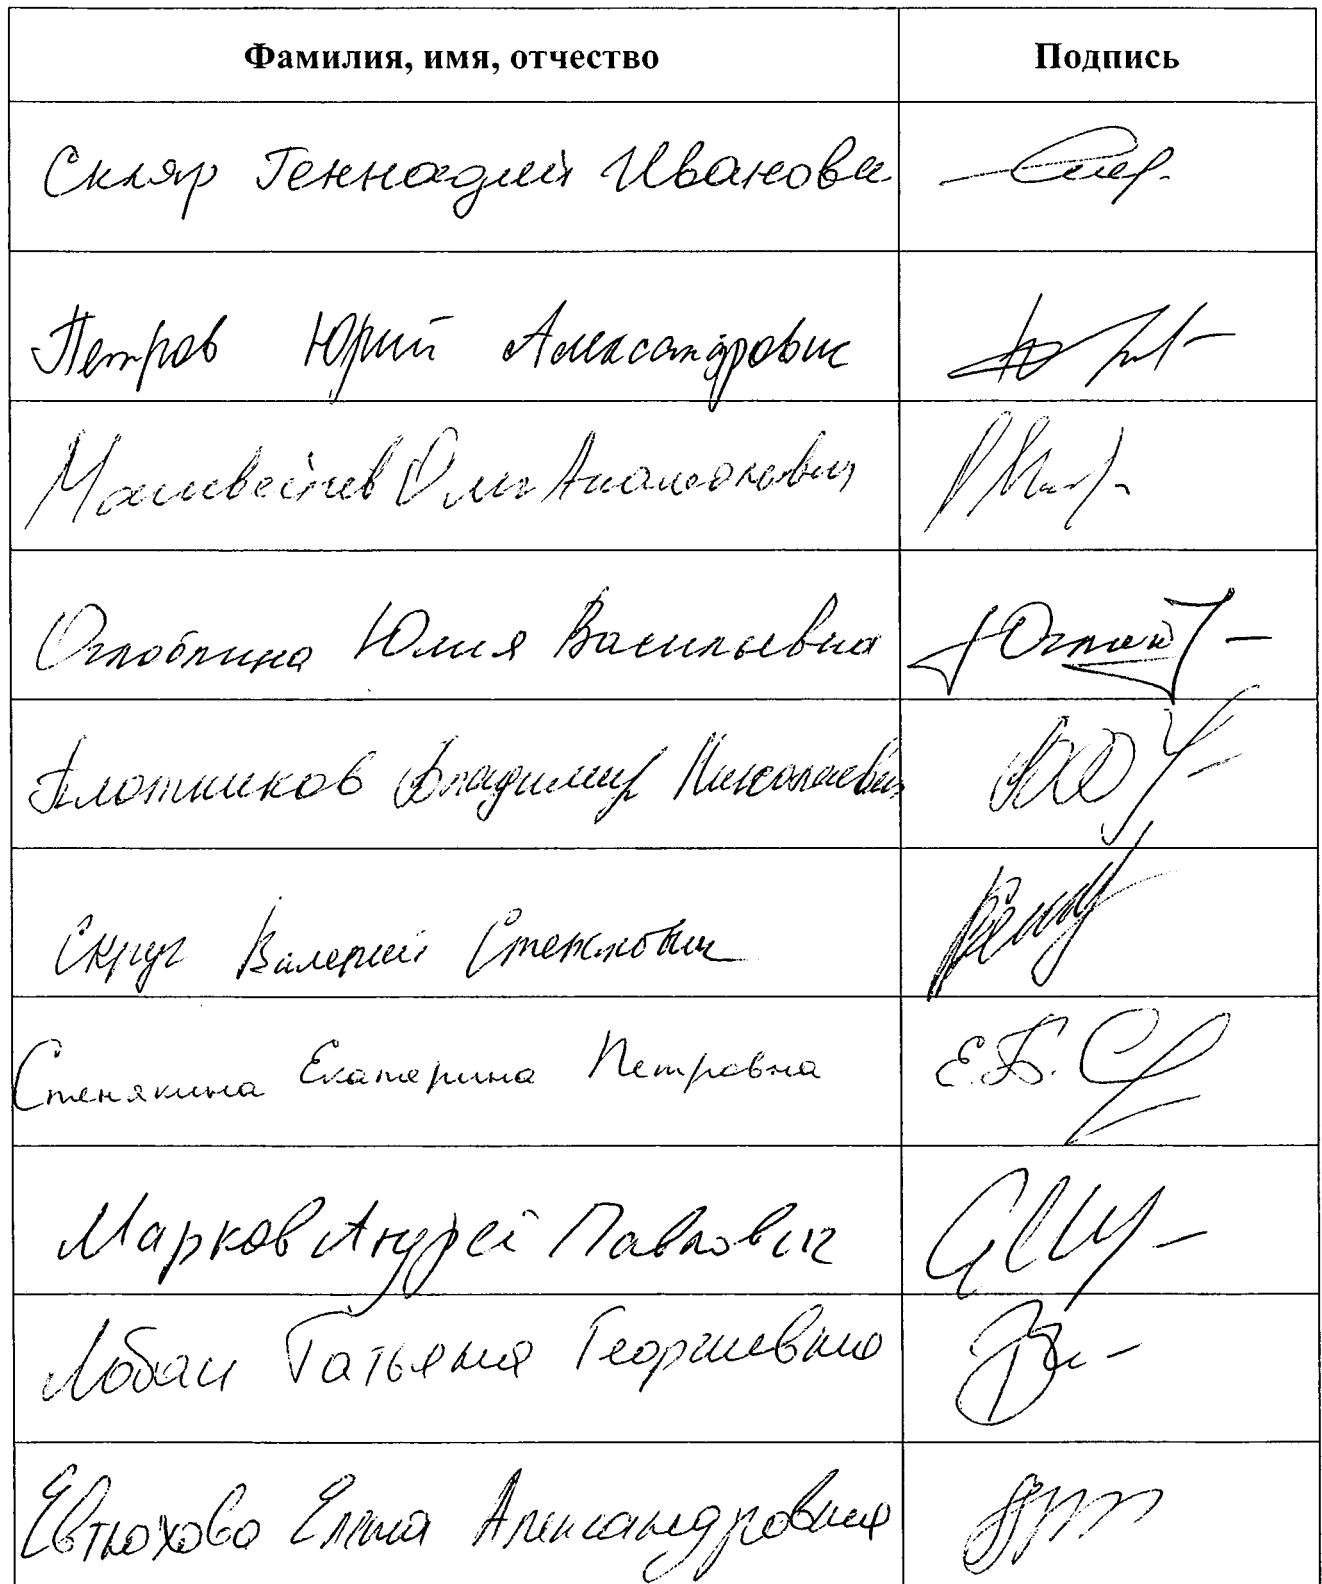 Фамилия, имя, отчество Подпись
Скляр Геннадий Иванови
Петров Юрий Александрович
Матвейчев Олег Анатольевич
Оглоблина Юлия Васильевна
Плотников Владимир Николаевич
Скруг Валерий Степанович
Стенякина Екатерина Петровна Е.П.С
Марков Андрей Павлович
Лобач Татьяна Георгиевна
Евтюхова Елена Александровна